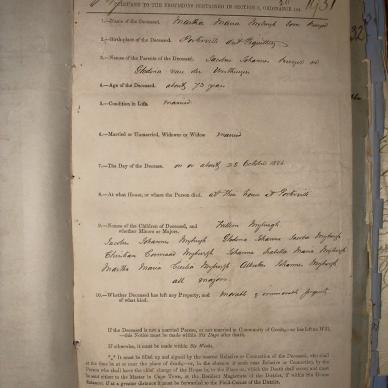 PURSUANT TO THE PROVISIONS CONTAINED IN SECTION 9, ORDINANCE 104.
1.—Name of the Deceased. Martha Maria Myburgh born
2.—Birth-place of the Deceased.
3.—Names of the Parents of the Deceased. Jacobus Johannes
4.—Age of the Deceased. about 70 years
5.—Condition in Life. married
6.—Married or Unmarried, Widower or Widow married
7.—The Day of the Decease. on or about 28 October
8.—At what House, or where the Person died. at Her home at
9.—Names of the Children of Deceased, and Willem Myburgh
whether Minors or Majors.
Jacobus Johannes Myburgh Johanna Jacoba Myburgh
Christian Myburgh Johanna Isabella Maria Myburgh
Martha Maria Cecilia Myburgh Albertus Johannes Myburgh
all majors
10.—Whether Deceased has left any Property, and movable & immovable property
of what kind.
If the Deceased is not a married Person, or not married in Community of Goods,—or has left no Will,
—this Notice must be made within Six Days after death.
If otherwise, it must be made within Six Weeks.
It must be filled up and signed by the nearest Relative or Connection of the Deceased, who shall
at the time be at or near the place of death;—or, in the absence of such near Relative or Connection, by the
Person who shall have the chief charge of the House in, or the Place on, which the Death shall occur; and must
be sent either to the Master in Cape Town, or the Resident Magistrate of the District, if within Six Hours
Distance. If at a greater distance it must be forwarded to the Field-Cornet of the District.